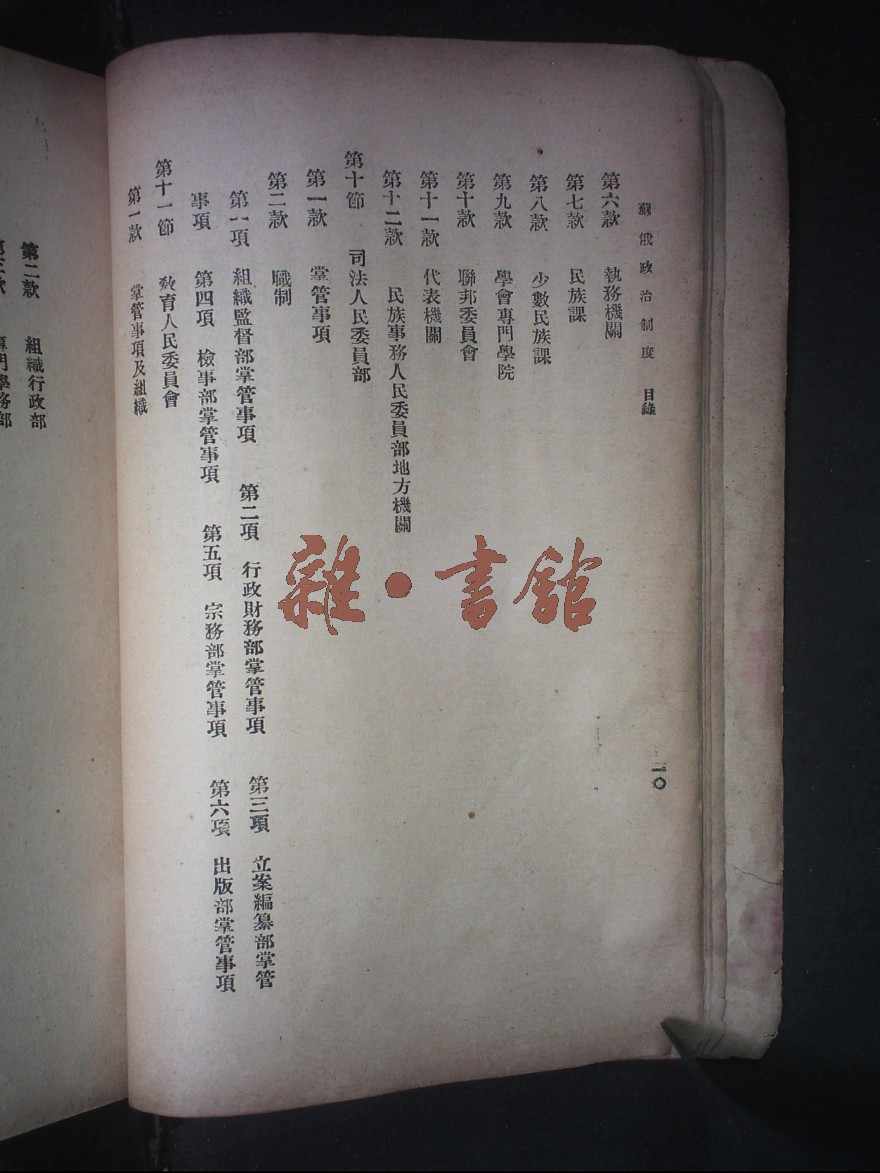 蘇俄政治制度 目錄
一〇
第六款 執務機關
第七款 民族課
第八款 少數民族課
第九款 學會專門學院
第十款 聯邦委員會
第十一款 代表機關
第十二款 民族事務人民委員部地方機關
第十節 司法人民委員部
第一款 掌管事項
第二款 職制
第一項 組織監督部掌管事項 第二項 行政財務部掌管事項 第三項 立案編纂部掌管
事項 第四項 檢事部掌管事項 第五項 宗務部掌管事項 第六項 出版部掌管事項
第十一節 教育人民委員會
第一款 掌管事項及組織
第二款 組織行政部
第三款 專門學務部
雜·書館